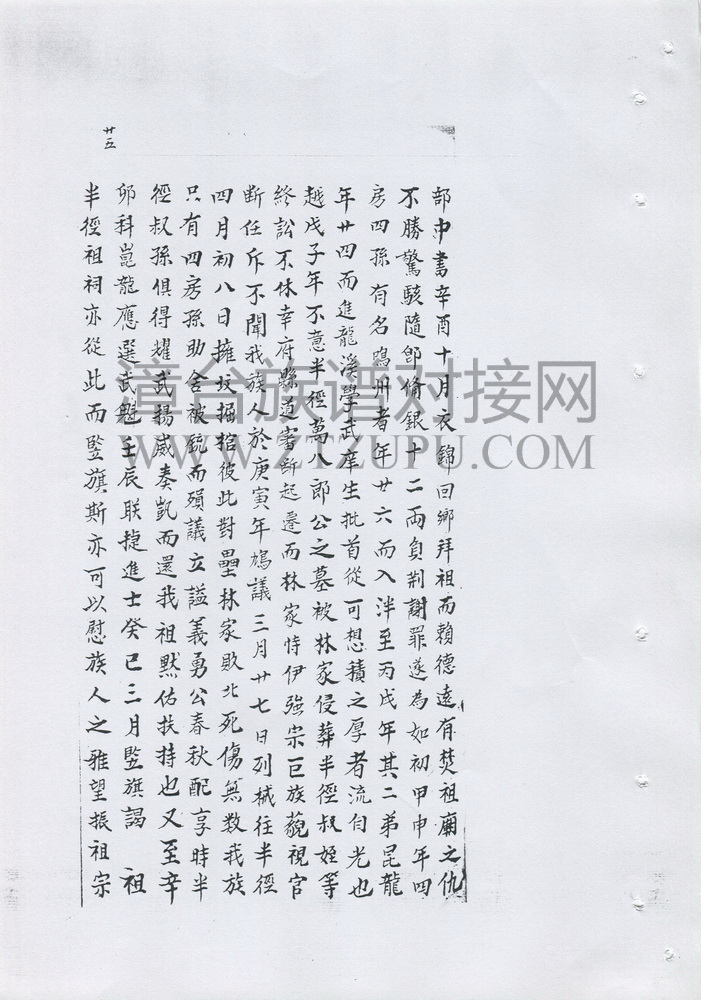 部中書辛酉十月衣錦回鄉拜祖而賴德遠有焚祖廟之仇
不勝驚駭隨即脩銀十二両負荆謝罪遂為如初甲申年四
房四孫有名鴎州者年廿六而入泮至丙戌年其二弟昆龍
年廿四而進龍溪學武庠生批首從可想積之厚者流自光也
越戊子年不意半徑萬八郎公之墓被林家侵葬半徑叔姪等
終訟不休幸府縣道審斷起遷而林家恃伊強宗巨族藐視官
斷任斥不聞我族人於庚寅年鳩議三月廿七日列械往半徑
四月初八日擁坟掘拾彼此對壘林家敗北死傷無数我族
只有四房孫助舍被銃而殞議立謚義勇公春秋配享時半
徑叔孫俱得耀武揚威奏凱而還我祖默佑扶持也又至辛
卯科崑龍應選武魁壬辰联捷進士癸巳三月竪旗謁 祖
半徑祖祠亦從此而竪旗斯亦可以慰族人之雅望振祖宗
廿五
漳台族谱对接网
WWW.ZTZUPU.COM